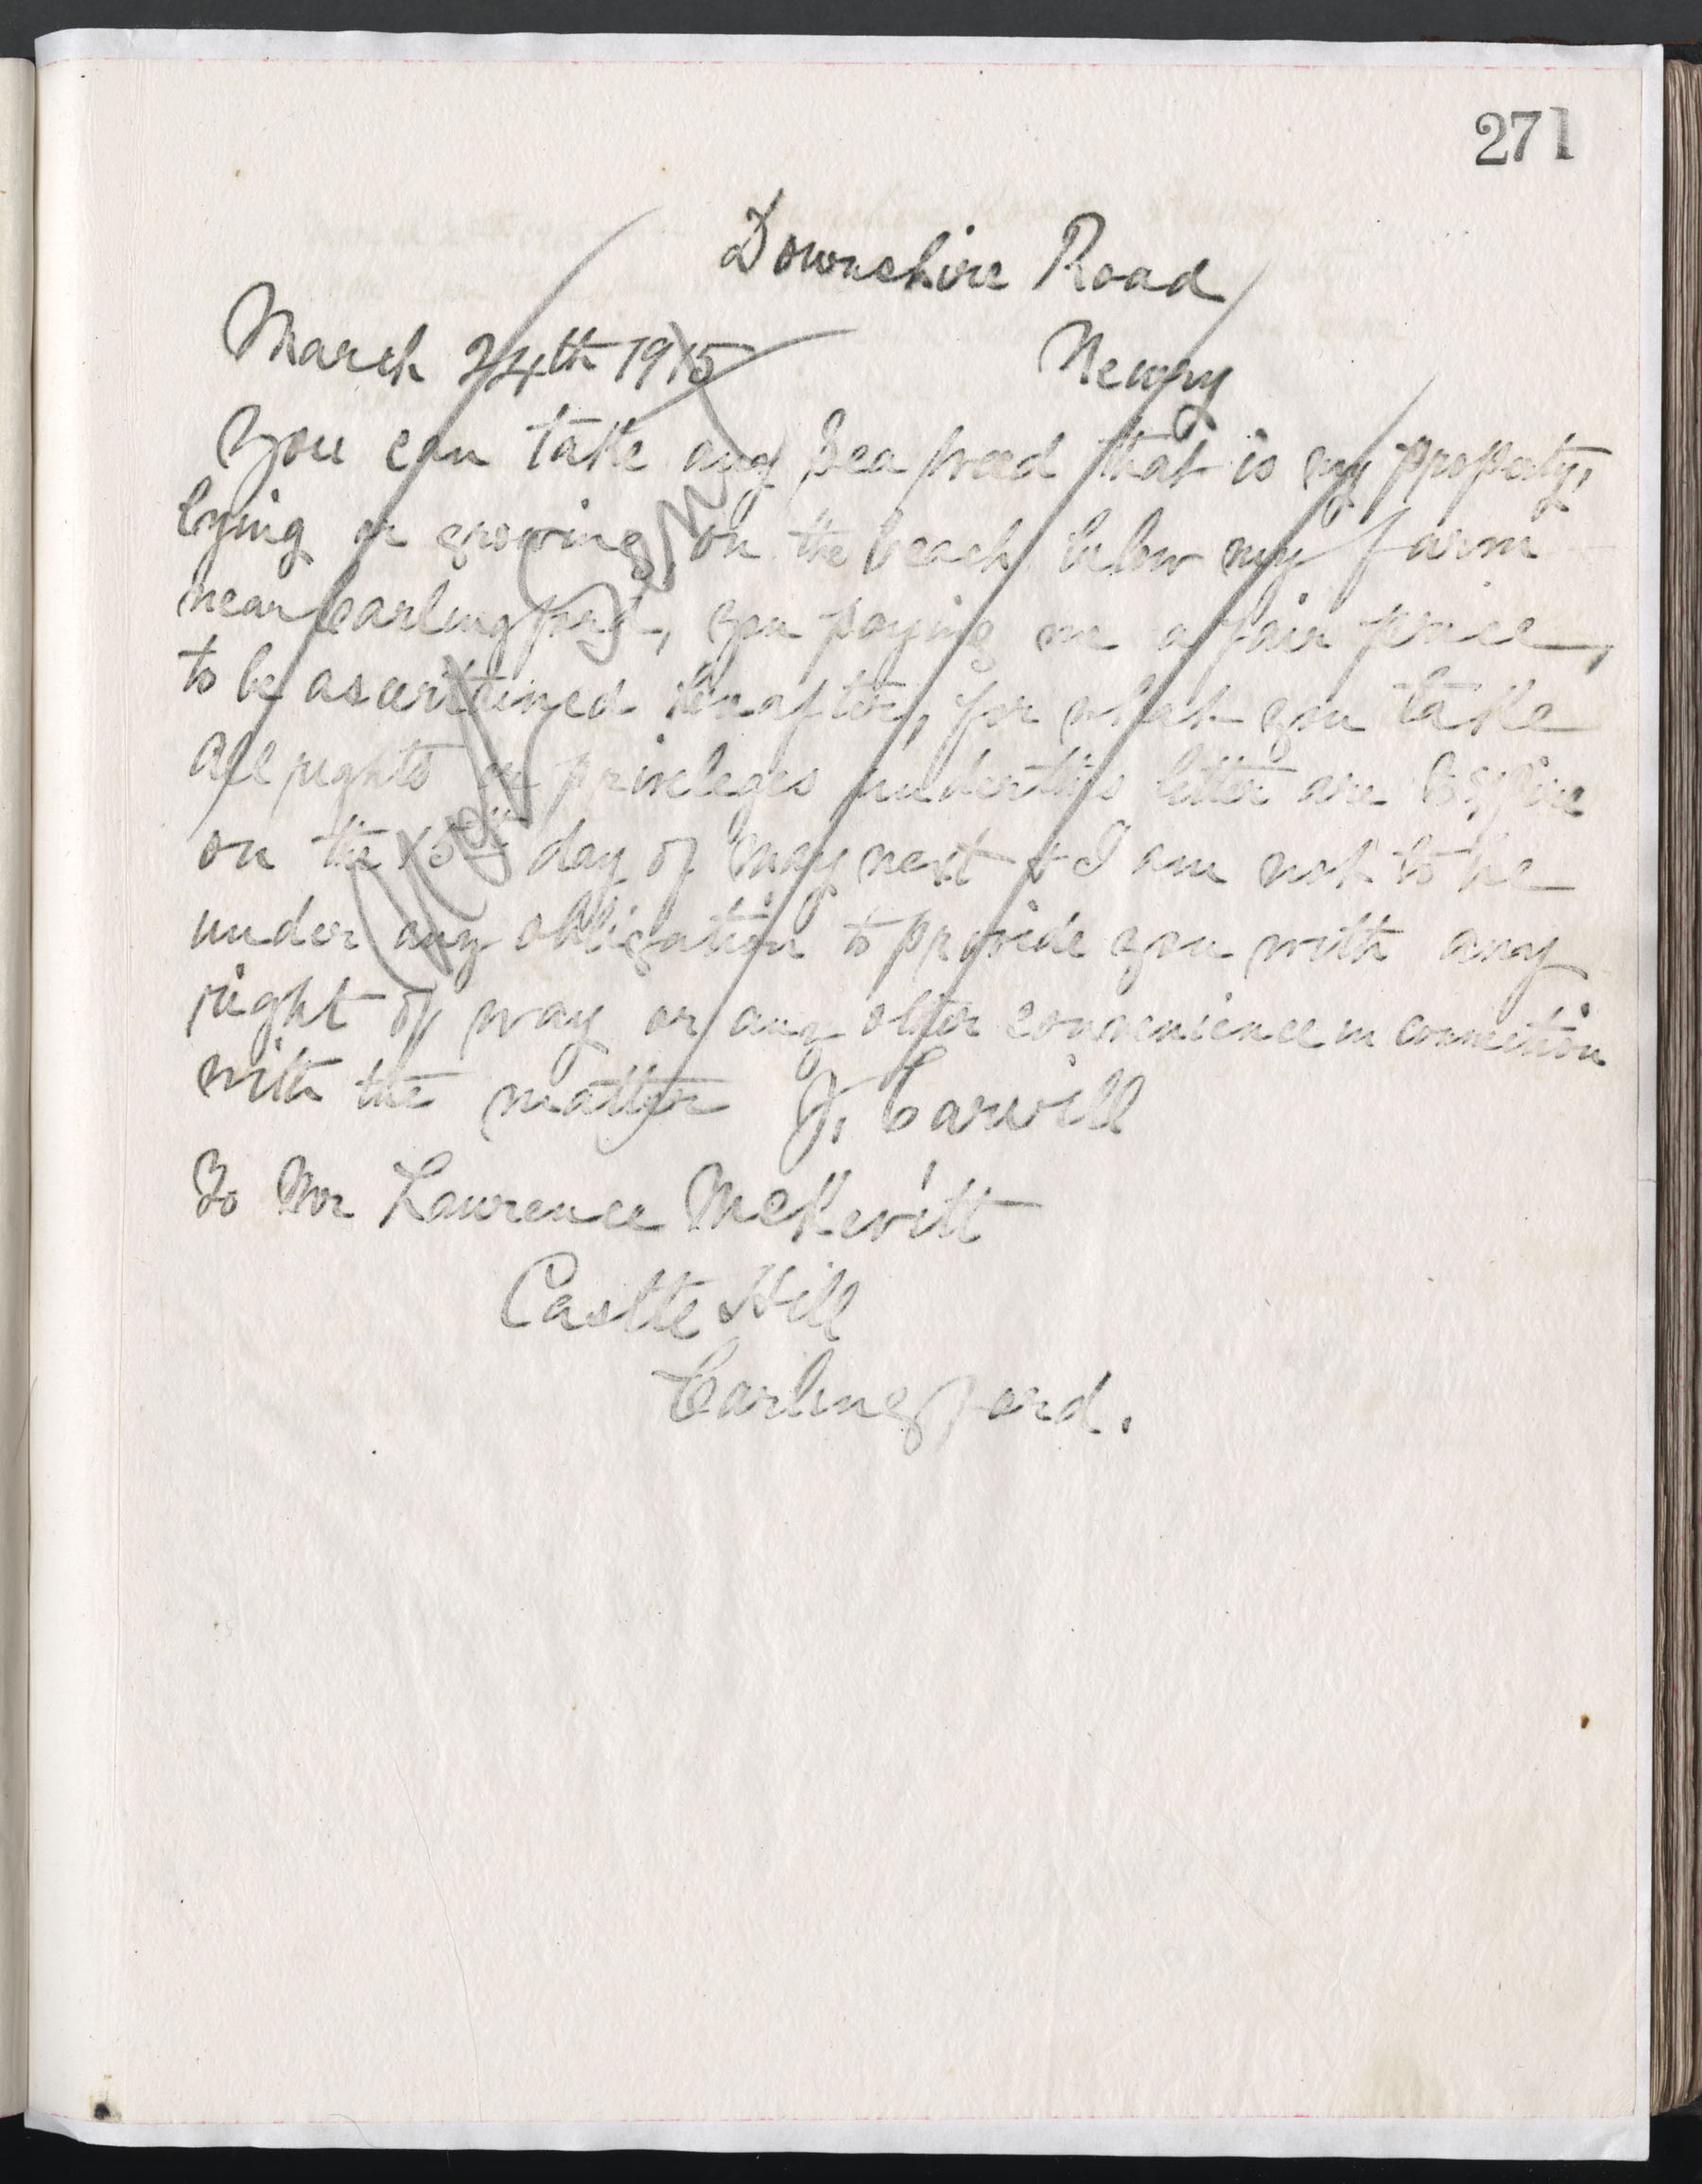 271
Downshire Road
March 24th 1915 Newry
You can take any Sea weed that is my property,
lying or growing on the beach below my farm
near Carlingford, you paying me a fair price,
to be ascertained hereafter, for what you take
All rights or privileges under this letter are to expire
on the 15th day of May next & I am not to be
under any obligation to provide you with any
right of way or any other convenience in connection
with the matter J. Carvill
To Mr Lawrence McKevitt
Castle Hill
Carlingford.